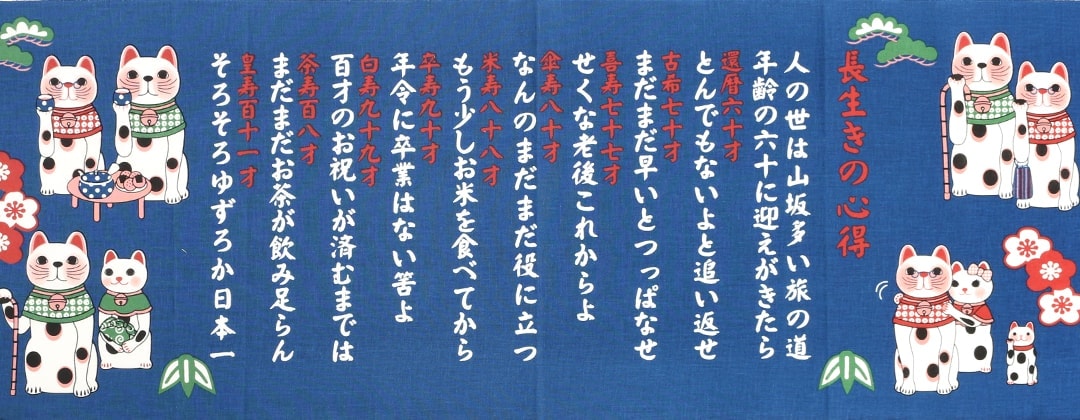 長生きの心得
人の世は山坂多い旅の道
年齢の六十に迎えがきたら
還暦六十才
とんでもないよと追い返せ
古希七十才
まだまだ早いとつっぱなせ
喜寿七十七才
せくな老後これからよ
傘寿八十才
なんのまだまだ役に立つ
米寿八十八才
もう少しお米を食べてから
卒寿九十才
年令に卒業はない筈よ
白寿九十九才
百才のお祝いが済むまでは
茶寿百八才
まだまだお茶が飲み足らん
皇寿百十一才
そろそろゆずろか日本一